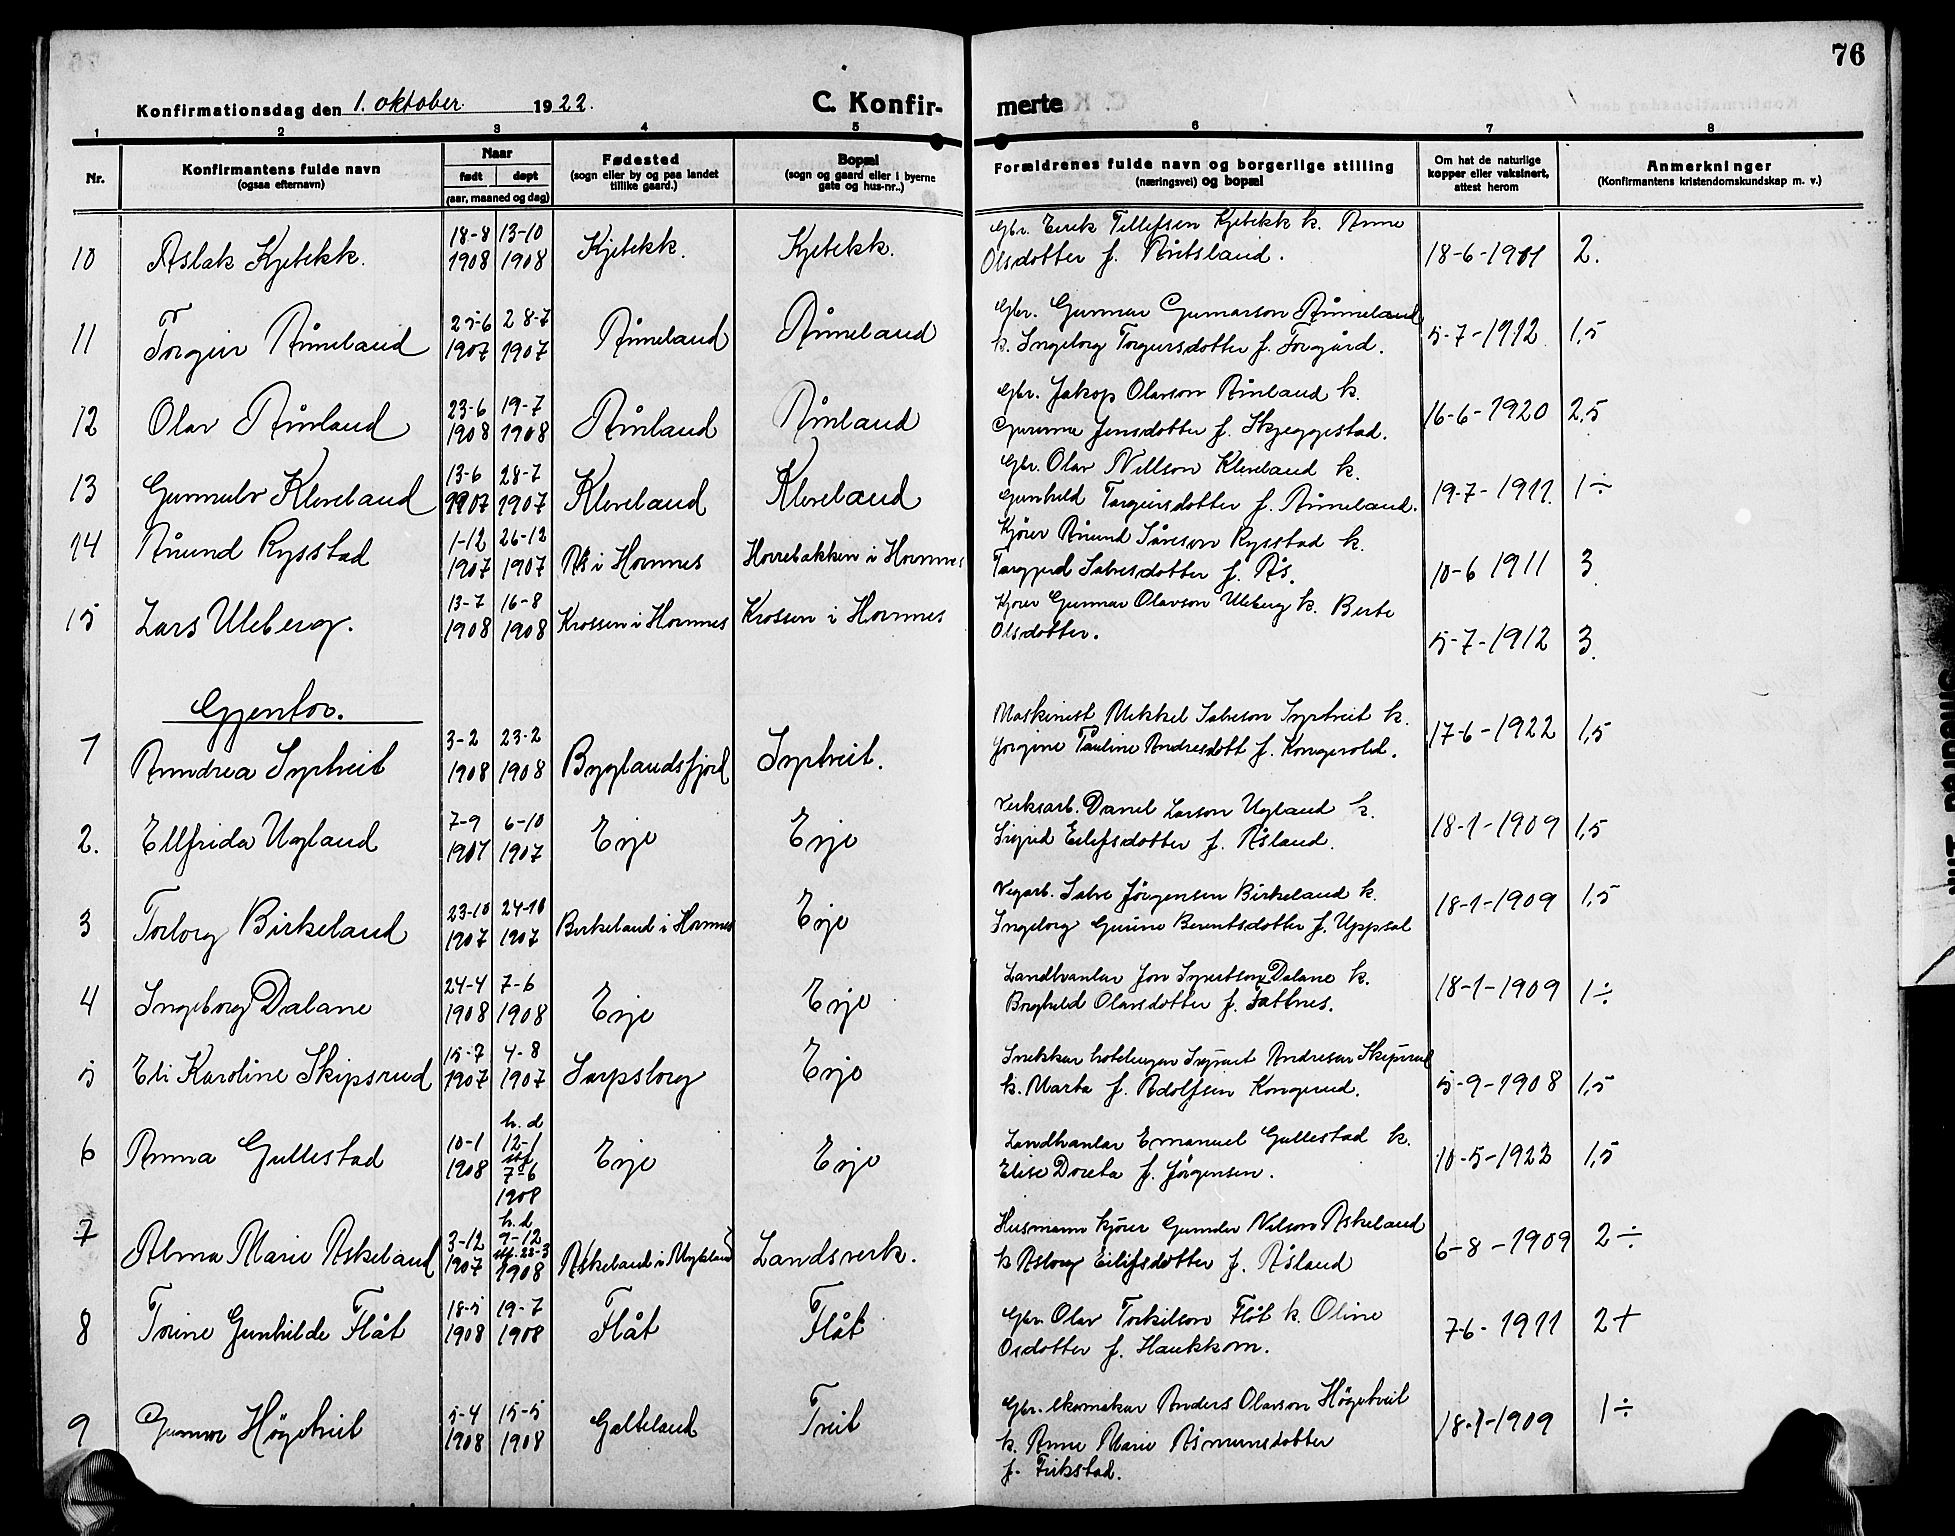 76
Konfirmationsdag den 1. oktober 1922.
C. Konfir-
merte
1 2 3 4 5 6 7 8
Nr.
Konfirmantens fulde navn
(ogsaa efternavn)
Naar
født døpt
(aar, maaned og dag)
Fødested
(sogn eller by og paa landet
tillike gaard.)
Bopæl
(sogn og gaard eller i byerne
gate og hus-nr..)
Forældrenes fulde navn og borgerlige stilling
(næringsvei) og bopæl
Om hat de naturlige
kopper eller vaksinert,
attest herom
Anmerkninger
(Konfirmantens kristendomskundskap m. v.)
18-8 13-10 Gbr. Eirik Tellefsen Kjetekk k. Anne
10 Aslak Kjetekk. 1908 1908 Kjetekk. Kjetekk. Olsdotter f. 18-6-1911 2.
25-6 28-7 Gbr. Gunnar Gunnarson Åmeland
11 Torgeir Åmeland 1907 1907 Åmeland Åmeland k. Ingeborg Torgeirsdotter f. Forgård. 5-7-1912 1,5
23-6 19-7 Gbr. Jakop Olavson k.
12 Olav 1908 1908 Jensdotter f. Skjeggestad. 16-6-1920 2,5
13-6 28-7 Gbr. Olav Nillson Kleveland k.
13 Gunnulv Kleveland 1907 1907 Kleveland Kleveland Gunhild Torgeirsdotter f. Åmeland. 19-7-1911. 1÷
1-12 26-12 Kjører Ånund Rysstad k.
14 Ånund Rysstad 1907 1907 Ås i Hornnes Horrebakken i Hornnes Torgjerd Salvesdotter f. Ås. 10-6 1911 3
13-7 16-8 Kjører Gunnar Olavson Uleberg k. Berte
15 Lars Uleberg. 1908 1908 Krossen i Hornnes Krossen i Hornnes Olsdotter. 5-7-1912 3.
Gjentor.
3-2 23-2 Maskinist Mikkel Salveson Syrtveit k.
1 Anndrea Syrtveit 1908 1908 Byglandsfjord Syrtveit. Jorgine Pauline Andresdott f. Kongevold. 17-6-1922 1,5
7-9 6-10 Verksarb. Danel Larson Ugland k.
2. Ellfrida Ugland 1907 1907 Evje Evje Sigrid Eilifsdotter f. Åsland. 18-1-1909 1,5
23-10 24-10 Vegarb. Salve Jörgensen Birkeland k.
3 Torborg Birkeland 1907 1907 Birkeland i Hornnes Evje Ingeborg Gurine Berentsdotter f. Uppsal 18-1-1909 1,5
24-4 7-6 Landhandlar Jon Syvertson Dalane k.
4 Ingeborg Dalane 1908 1908 Evje Evje Borghild Olavsdotter f. Fattnes. 18-1-1909 1÷
15-7 4-8 Snekkar Andresen Skipsrud
5 Eli Karoline Skipsrud 1907 1907 Sarpsborg Evje k. Marta f. Adolfsen Kongsrud. 5-9-1908 1,5
h. d
10-1 12-1 Landhanlar Emanuel Gullestad k.
6 Anna Gullestad 1908 7-6 Evje Evje Elise Doreta f. Jörgensen. 10-5-1922 1,5
1908
h. d
3-12 9-12 Husmann kjører Gunder Nilson Askeland
7 Alma Marie Askeland 1907 stf. 22-3 1908 Askeland i Mykland Landsverk. k Asborg Eilifsdotter f. Åsland 6-8-1909 2÷
18-5 19-7 Gbr. Olav Torkilson Flåt k. Oline
8 Torine Gunhilde Flåt 1908 1908 Flåt Flåt Osdotter f. Haukkom. 7-6-1911 2+
5-4 15-5 Gbr. skomakar Anders Olavson Högetveit
9 Gunnar Högetveit 1908 1908 Galteland Tveit k. Anne Marie Åsmunsdotter 18-1-1909 1÷
f. Firkstad.